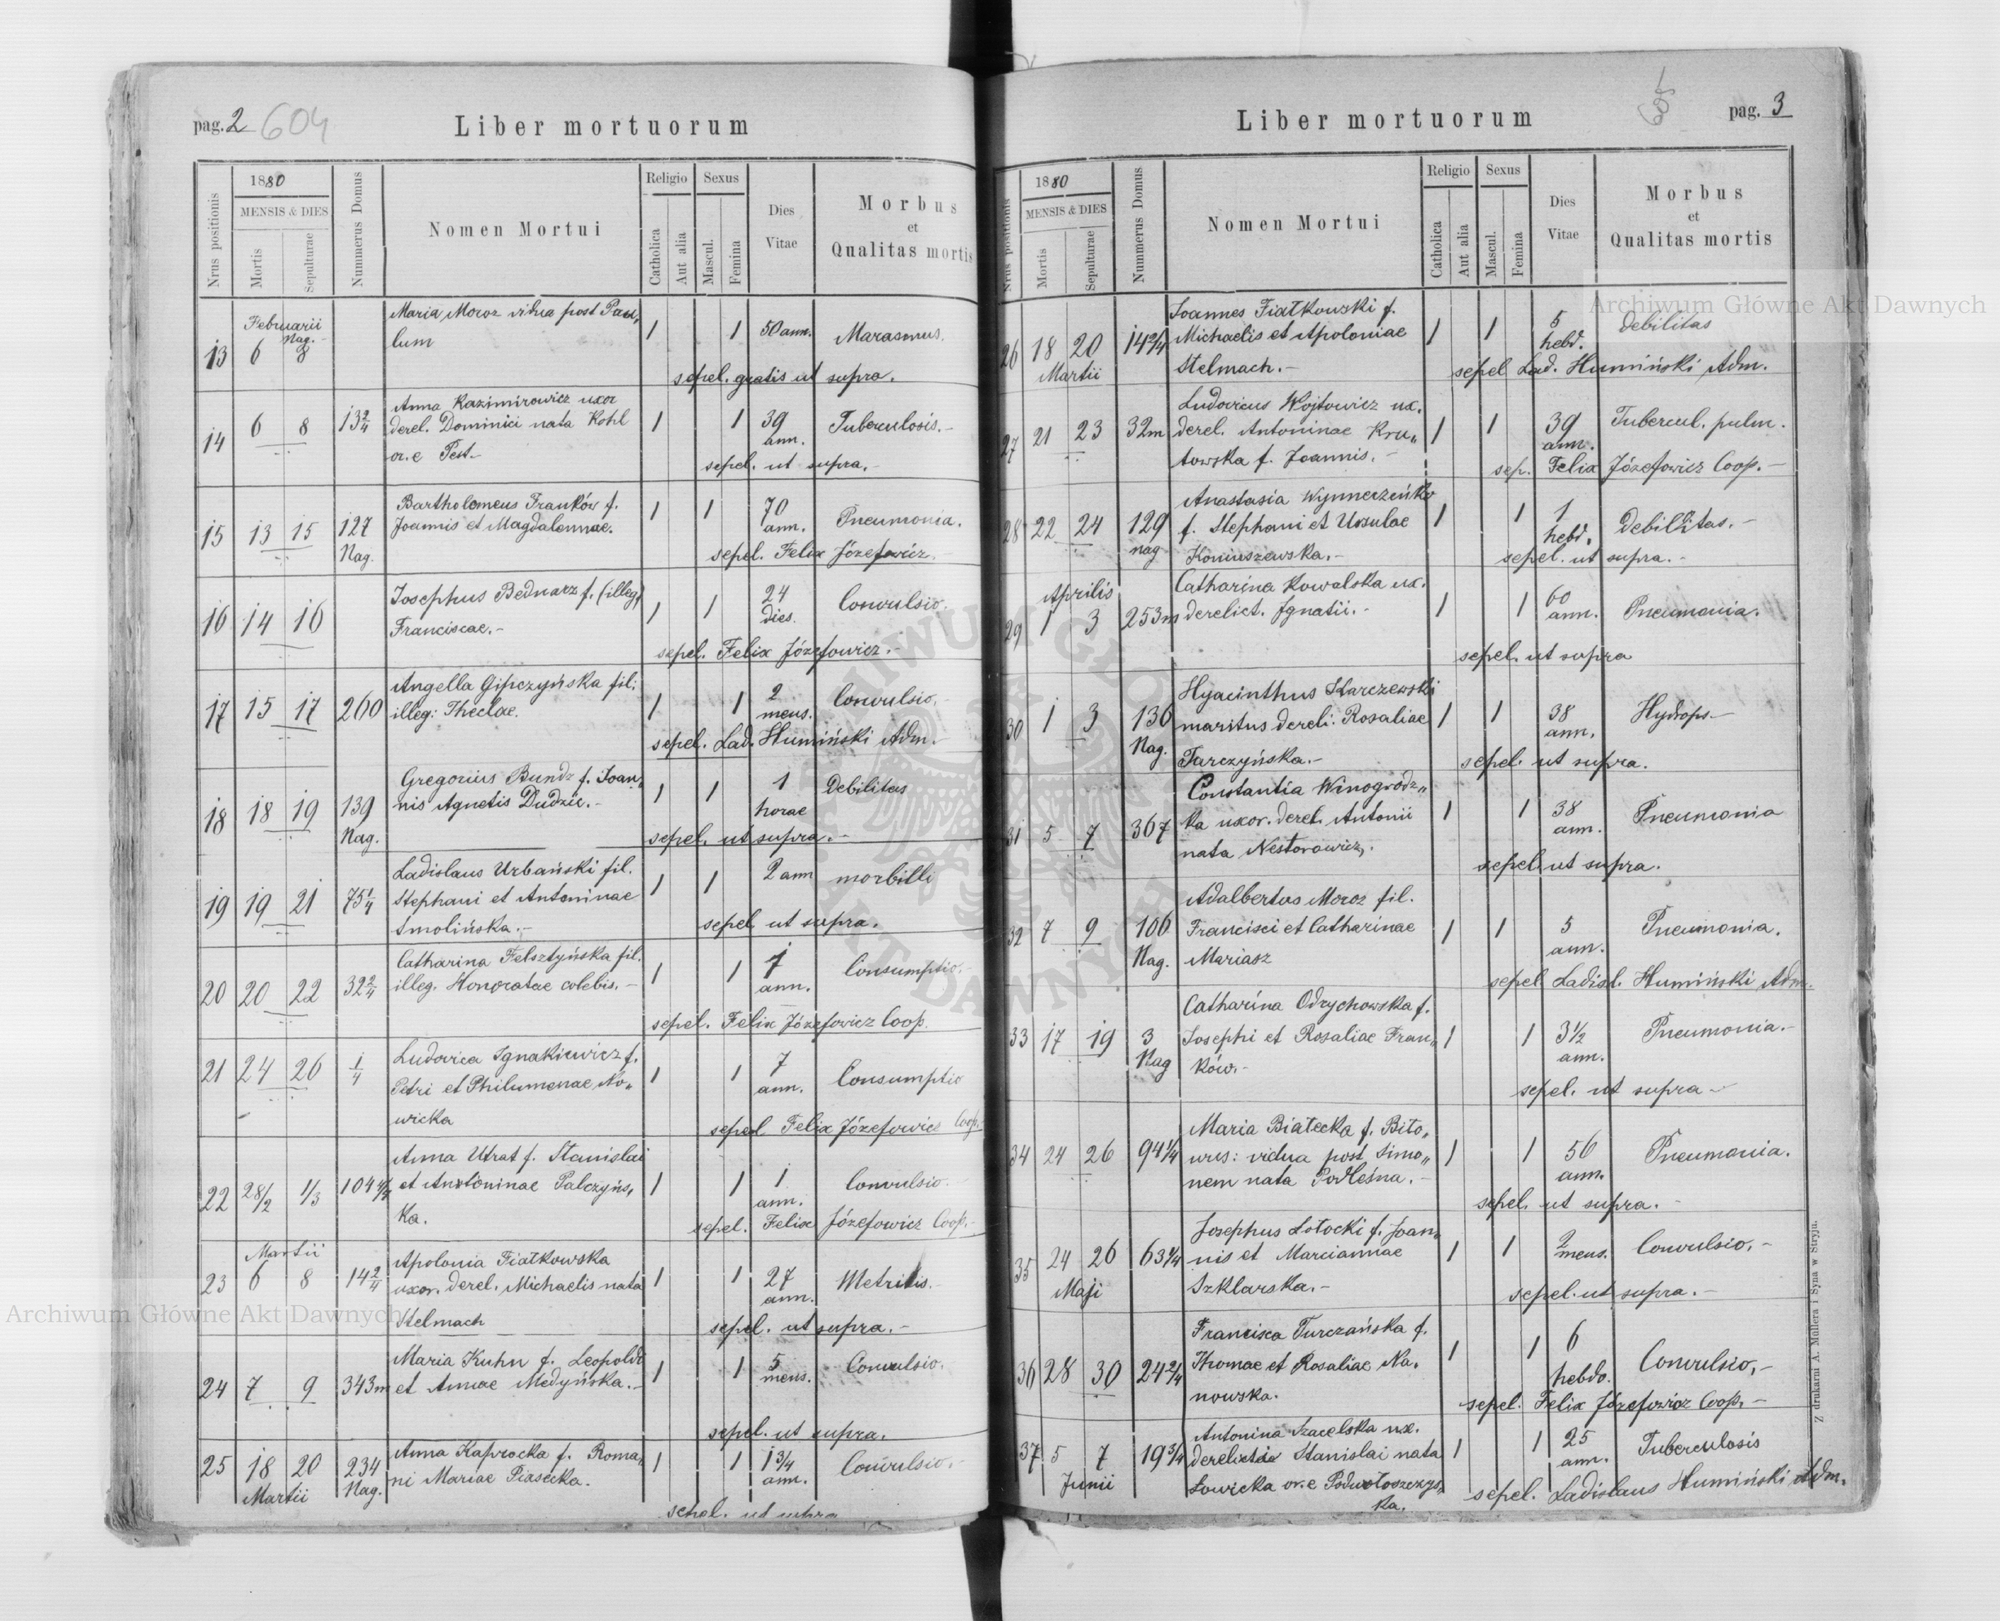 pag. 2 604
Liber mortuorum
Nrus positionis
1880
MENSIS & DIES
Mortis
Sepulturae
Nummerus Domus
Nomen Mortui
Religio
Catholica
Aut alia
Sexus
Mascul.
Femina
Dies
Vitae
Morbus
et
Qualitas mortis
Februarii
Nag.
13 6 8 Maria Moroz vidua post Pau„ 1 1 50 ann. Marasmus.
lum
sepel. gratis ut supra.
14 6 8 13 2/4 Anna Kazimirowicz uxor 1 1 39 ann. Tuberculosis.-
derel. Dominici nata Kohl
or. e Pest.-
sepel. ut supra.-
15 13 15 127 Nag. Bartholomeus Franków f. 1 1 70 ann. Pneumonia.
Joannis et Magdalennae.
sepel. Felix Józefowicz.-
16 14 16 Josephus Bednarz f. (illeg) 1 1 24 dies. Convulsio.
Franciscae.-
sepel. Felix Józefowicz.-
17 15 17 260 Angella Gipczyńska fil: 1 1 2 mens. Convulsio.
illeg: Theclae.
sepel. Lad. Humiński Adm.-
18 18 19 139 Nag. Gregorius Bundz f. Joan„ 1 1 1 horae Debilitas
nis Agnetis Dudzic.-
sepel. ut supra.-
19 19 21 75 1/4 Ladislaus Urbański fil. 1 1 2 ann morbilli
Stephani et Antoninae
Smolińska.-
sepel ut supra.
20 20 22 32 2/4 Catharina Felsztyńska fil. 1 1 1 ann. Consumptio.-
illeg. Honoratae celebis.-
sepel. Felix Józefowicz Coop.
21 24 26 1/4 Ludovica Ignakiewicz f. 1 1 7 ann. Consumptio
Petri et Philumenae No„
wicka
sepel Felix Józefowicz Coop.-
22 28/2 1/3 104 Anna Utrat f. Stanislai 1 1 1 ann. Convulsio.-
et Antoninae Palczyńs„
ka.
sepel. Felix Józefowicz Coop.-
Martii
23 6 8 14 2/4 Apolonia Fiałkowska 1 1 27 ann. Metritis.-
uxor. derel. Michaelis nata
Stelmach
sepel. ut supra.-
24 7 9 343m Maria Kuhn f. Leopoldi 1 1 5 mens. Convulsio.
et Annae Medyńska.-
sepel. ut supra.
25 18 20 234 Nag. Anna Kaprocka f. Roma„ 1 1 1 3/4 ann. Convulsio.-
Martii
ni Mariae Piasecka.
sepel. ut supra
pag. 3
Liber mortuorum
Nrus positionis
1880
MENSIS & DIES
Mortis
Sepulturae
Nummerus Domus
Nomen Mortui
Religio
Catholica
Aut alia
Sexus
Mascul.
Femina
Dies
Vitae
Morbus
et
Qualitas mortis
26 18 20 14 2/4 Joannes Fiałkowski f. 1 1 5 hebd. debilitas
Martii
Michaelis et Apoloniae
Stelmach.-
sepel Lad. Humiński Adm.
27 21 23 32m Ludovicus Wojtowicz ux. 1 1 39 ann. Tubercul. pulm.
derel. Antoninae Kru„
towska f. Joannis.-
sep. Felix Józefowicz Coop.-
28 22 24 129 nag Anastasia Wynnerzeńko 1 1 1 hebd. Debilitas.-
f. Stephani et Ursulae
Koniuszewska.-
sepel. ut supra.-
Aprilis
29 1 3 253m Catharina Kowalska ux. 1 1 60 ann. Pneumonia.
derelict. Ignatii.-
sepel. ut supra
30 1 3 136 Nag. Hyacinthus Karczewski 1 1 38 ann. Hydrops.-
maritus dereli. Rosaliae
Tarczyńska.-
sepel. ut supra.
31 5 7 367 Constantia Winogródz„ 1 1 38 ann. Pneumonia
ka uxor. derel. Antonii
nata Nestorowicz.
sepel ut supra.
32 7 9 106 Nag. Adalbertus Moroz fil. 1 1 5 ann. Pneumonia.
Francisci et Catharinae
Mariasz
sepel Ladisl. Humiński Adm.
33 17 19 3 Nag Catharina Odrychowska f. 1 1 3 1/2 ann. Pneumonia.-
Josephi et Rosaliae Fran„
ków.-
sepel. ut supra.-
34 24 26 94 1/4 Maria Białecka f. Bito„ 1 1 56 ann. Pneumonia.
wus: vidua post Simo„
nem nata Podleśna.-
sepel. ut supra.-
35 24 26 63 1/4 Josephus Łotocki f. Joan„ 1 1 2 mens. Convulsio.-
Maji
nis et Marciannae
Szklarska.-
sepel. ut supra.-
36 28 30 24 2/4 Francisca Turczańska f. 1 1 6 hebdo. Convulsio.-
Thomae et Rosaliae Na„
nowska.
sepel. Felix Józefowicz Coop.-
37 5 7 19 3/4 Antonina Szacelska ux. 1 1 25 ann. Tuberculosis
Junii
derelicta Stanislai nata
Łowicka or. e Podwołoczys„
ka.
sepel. Ladislaus Humiński Adm.
Z drukarni A. Müllera i Syna w Stryju.
Archiwum Główne Akt Dawnych
Archiwum Główne Akt Dawnych
ARCHIWUM GŁÓWNE AKT DAWNYCH